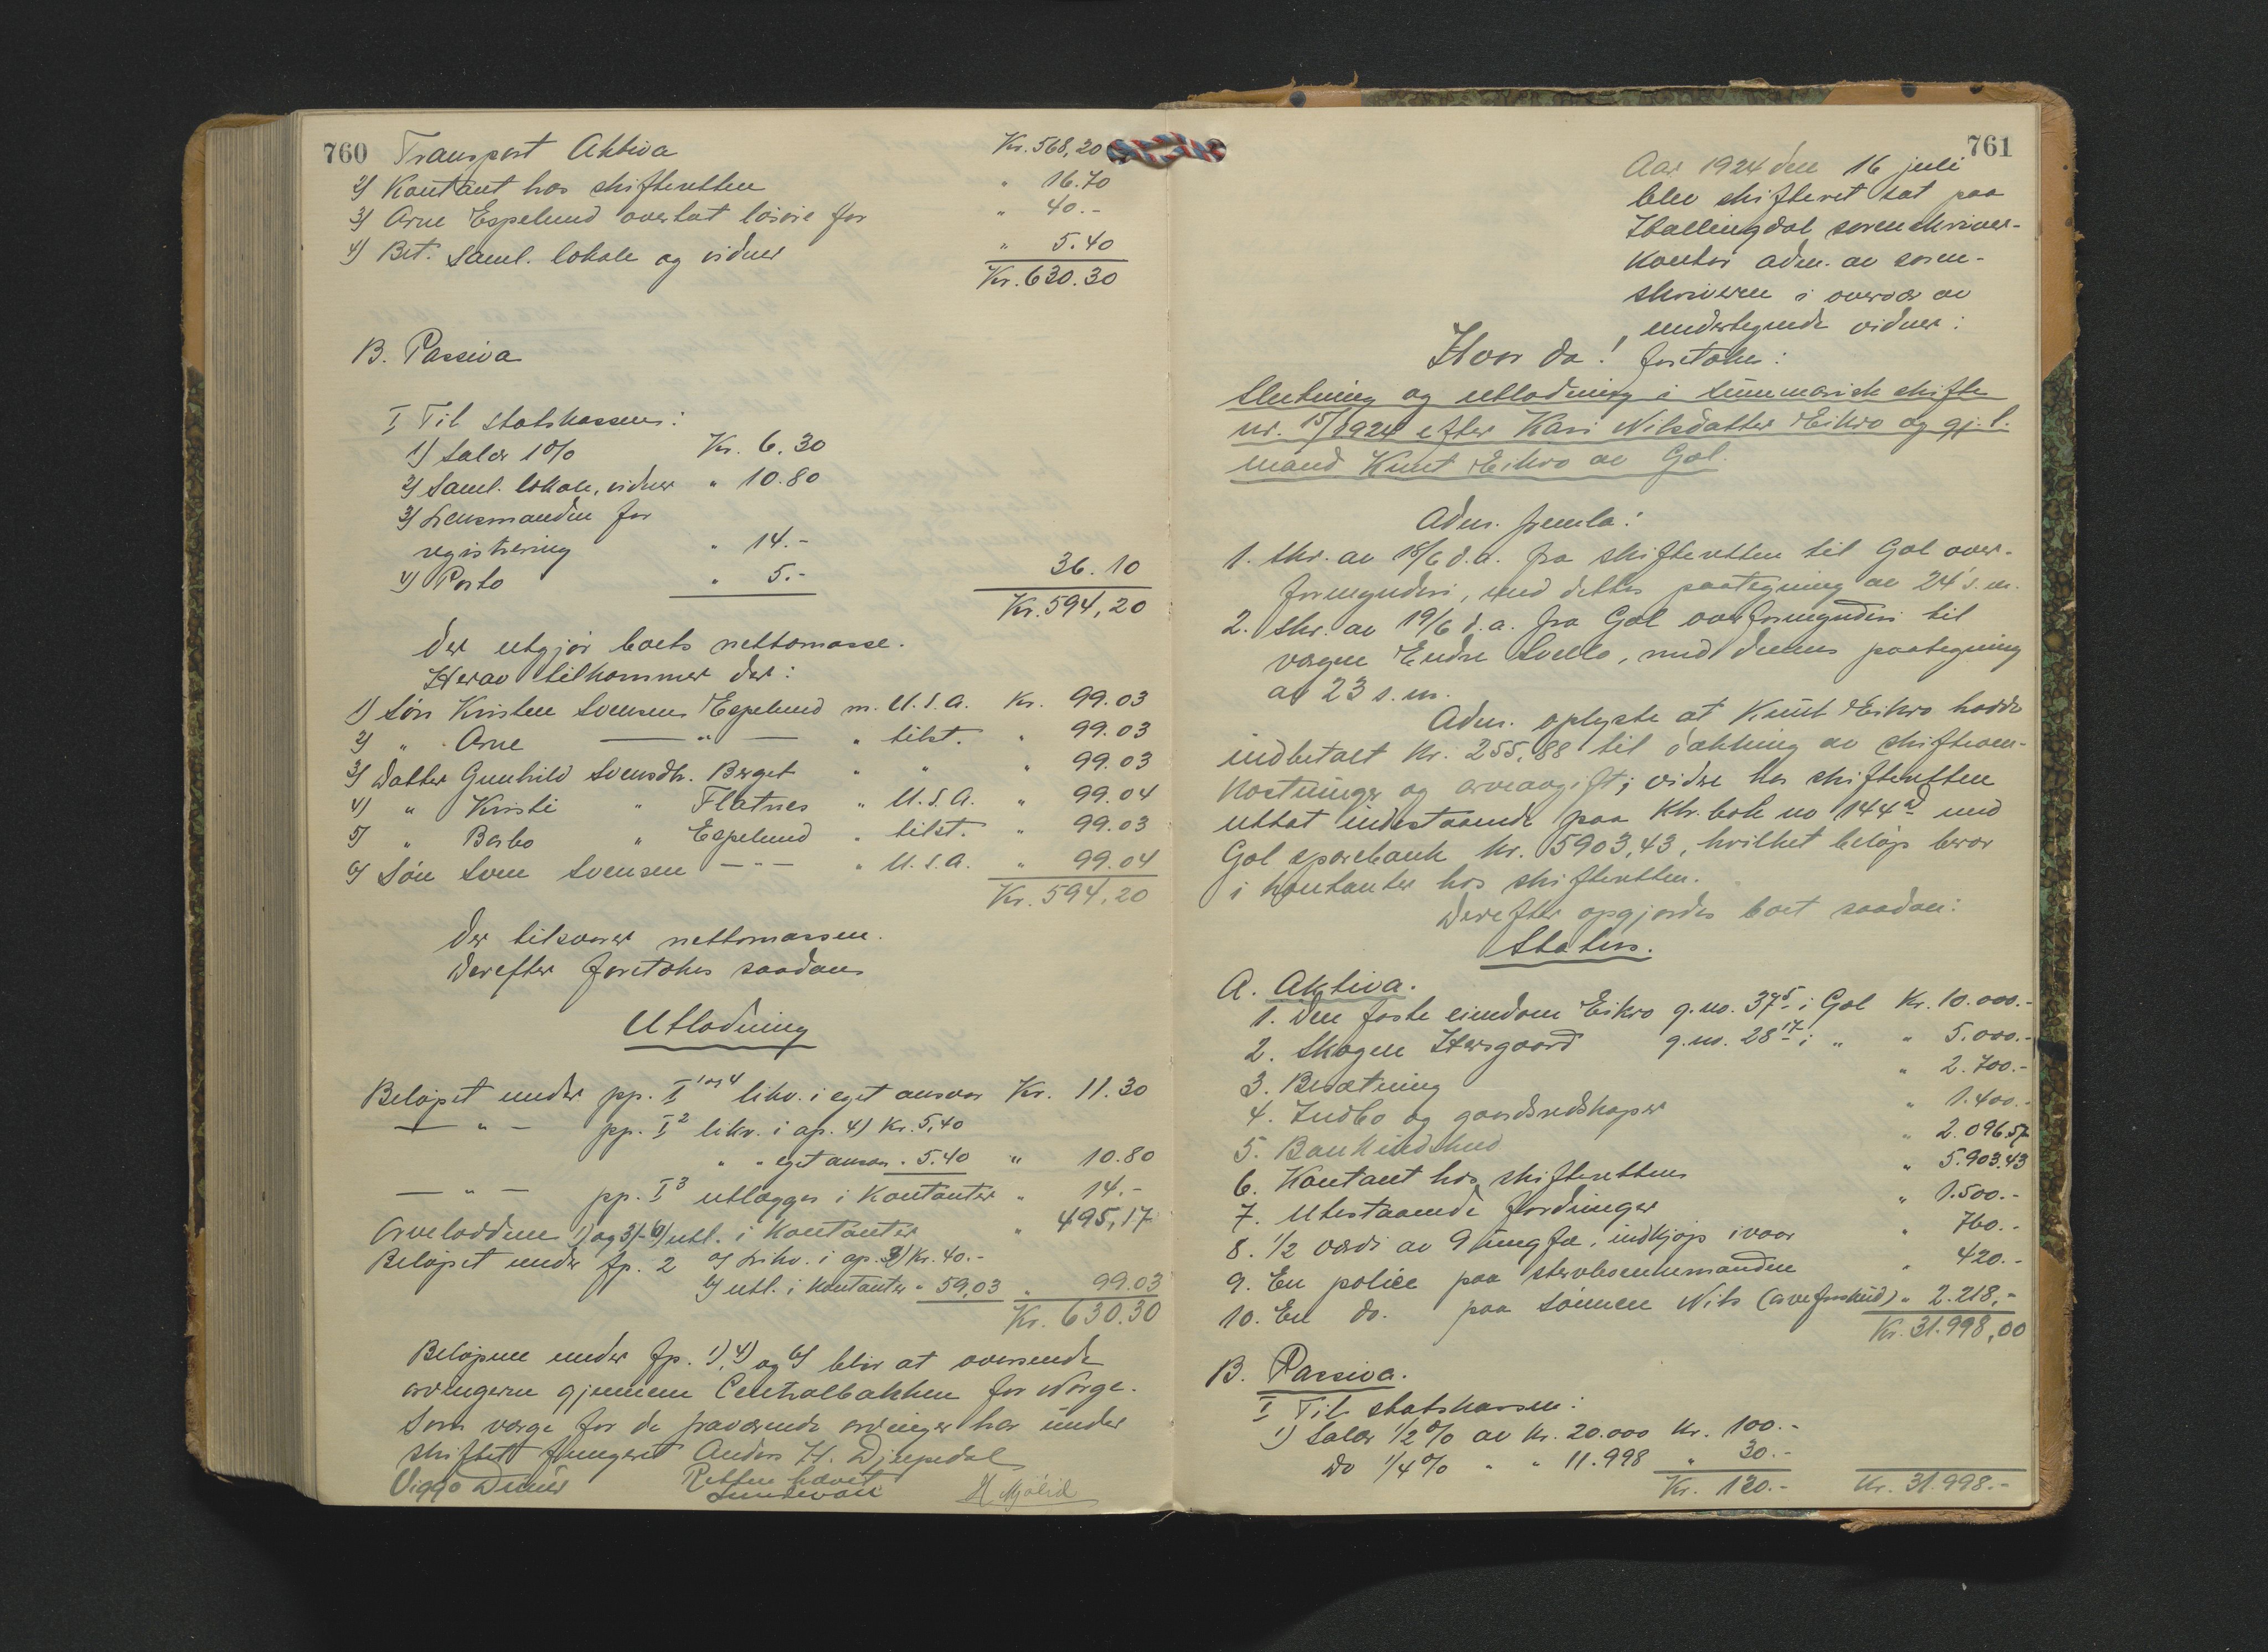 760 Transport Aktiva Kr. 568,20
2) Kontant hos skifteretten " 16.70
3) Arne Espelund overtat løsøre for " 40.-
4) Bet. saml. lokale og vidner " 5.40
Kr. 630.30
B. Passiva
I Til statskassen:
1) Salær 1% Kr. 6.30
2) Saml. lokale, vidner " 10.80
3) Lensmanden for
registrering " 14.-
4) Porto " 5.- 36.10
Kr. 594,20
der utgjør boets nettomasse.
Herav tilkommer der:
1) Søn Kristen Svensen Espelund m. U.S.A. Kr. 99.03
2) " Arne — " — " tilst. " 99.03
3) Datter Gunhild Svensdtr. Berget " " " 99.03
4) " Kristi " Flatnes " U.S.A. " 99.04
5) " Barbo " Espelund " tilst. " 99.03
6) Søn Sven Svensen — " — " U.S.A. " 99.04
Kr. 594,20
der tilsvarer nettomassen.
Derefter foretokes saadan
Utlodning
Beløpet under pp. I 1 og 4 likv. i eget ansvar Kr. 11.30
— " — pp. I 2 likv. i ap. 4) Kr. 5,40
" " eget ansvar " 5.40 " 10.80
— " — pp. I 3 utlægges i kontanter " 14.-
Arveloddene 1) og 3)-6) utl. i kontanter " 495,17
Beløpet under fp. 2 a) Likv. i ap. 3) Kr. 40.-
b) utl. i kontanter " 59,03 " 99.03
Kr. 630.30
Beløpene under fp. 1), 4) og 6) blir at oversende
arvingerne gjennem Centralbanken for Norge.
Som værge for de fraværende arvinger har under
skiftet fungeret Anders H. Djupedal
Retten hævet
Viggo H Mjålid
761
Aar 1924 den 16 juli
blev skifteret sat paa
Hallingdal sorenskriver-
kontor adm. av soren-
skriveren i overvær av
undertegnede vidner:
Hvor da! foretokes:
Slutning og utlodning i summarisk skifte
nr. 15/1924 efter Kari Nilsdatter Eikro og gj.l.
mand Knut Eikro av Gol.
Adm. fremla:
1. Skr. av 18/6 d.a. fra skifteretten til Gol over-
formynderi, med dettes paategning av 24 s.m.
2. Skr. av 19/6 d.a. fra Gol overformynderi til
vergen Endre, med dennes paategning
av 23 s.m.
Adm. oplyste at Knut Eikro hadde
indbetalt Kr. 255,88 til dækning av skifteom-
kostninger og arveavgift; videre har skifteretten
uttat indestaaende paa ktr. bok no 144 med
Gol sparebank kr. 5903,43, hvilket beløp beror
i kontanter hos skifteretten.
Derefter opgjordes boet saadan:
Status.
A. Aktiva.
1. Den faste eiendom Eikro g.no. 37 5 i Gol Kr. 10.000.-
2. Skogen Hersgaard g.no. 28 17 i " " 5.000.-
3. Besætning " 2.700.-
4. Indbo og gaardsredskaper " 1.400.-
5. Bankindskud " 2.096.57
6. Kontant hos skifteretten " 5.903.43
7. Utestaaende fordringer " 1.500.-
8. 1/2 værdi av 9 ungfæ, indkjøp ivaar " 760.-
9. En police paa stervboenkemanden " 420.-
10. En do. paa sønnen Nils (arveforskud) " 2.218,-
Kr. 31.998,00
B. Passiva.
I Til statskassen:
1) Salær 1/2% av kr. 20.000 Kr. 100.-
Do 1/4% " " 11.998 " 30.-
Kr. 130.- Kr. 31.998.-